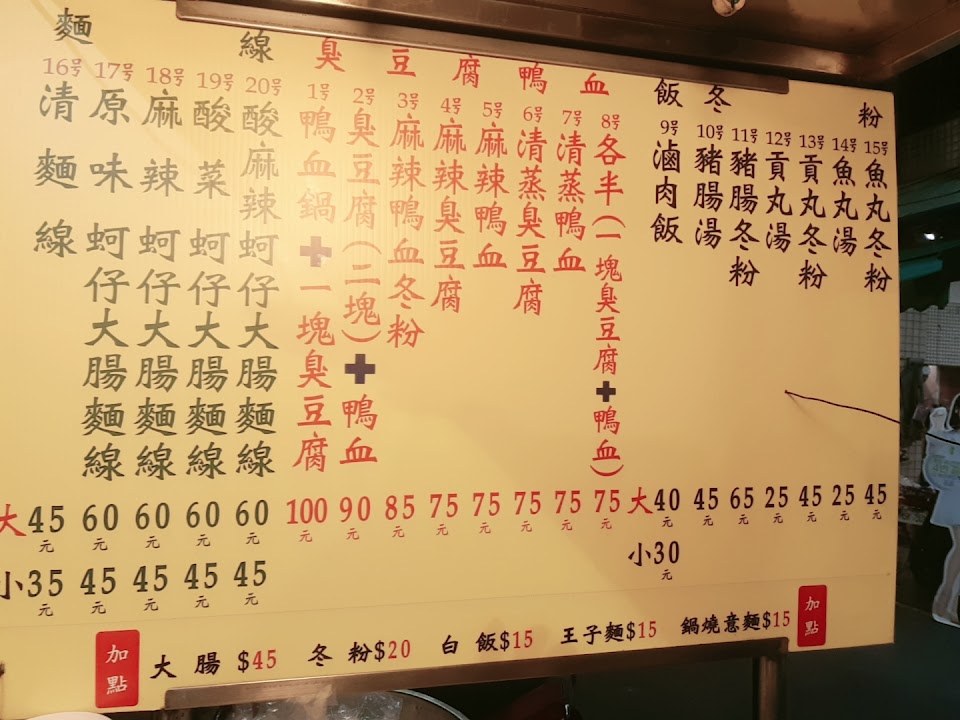 麵線
16号 清麵線 大45元 小35元
17号 原味蚵仔大腸麵線 60元 45元
18号 麻辣蚵仔大腸麵線 60元 45元
19号 酸菜蚵仔大腸麵線 60元 45元
20号 酸麻辣蚵仔大腸麵線 60元 45元
臭豆腐鴨血
1号 鴨血鍋+一塊臭豆腐 100元
2号 臭豆腐(二塊)+鴨血 90元
3号 麻辣鴨血冬粉 85元
4号 麻辣臭豆腐 75元
5号 麻辣鴨血 75元
6号 清蒸臭豆腐 75元
7号 清蒸鴨血 75元
8号 各半(一塊臭豆腐+鴨血) 75元
飯 冬粉
9号 滷肉飯 大40元 小30元
10号 豬腸湯 45元
11号 豬腸冬粉 65元
12号 貢丸湯 25元
13号 貢丸冬粉 45元
14号 魚丸湯 25元
15号 魚丸冬粉 45元
加點 大腸$45 冬粉$20 白飯$15 王子麵$15 鍋燒意麵$15 加點